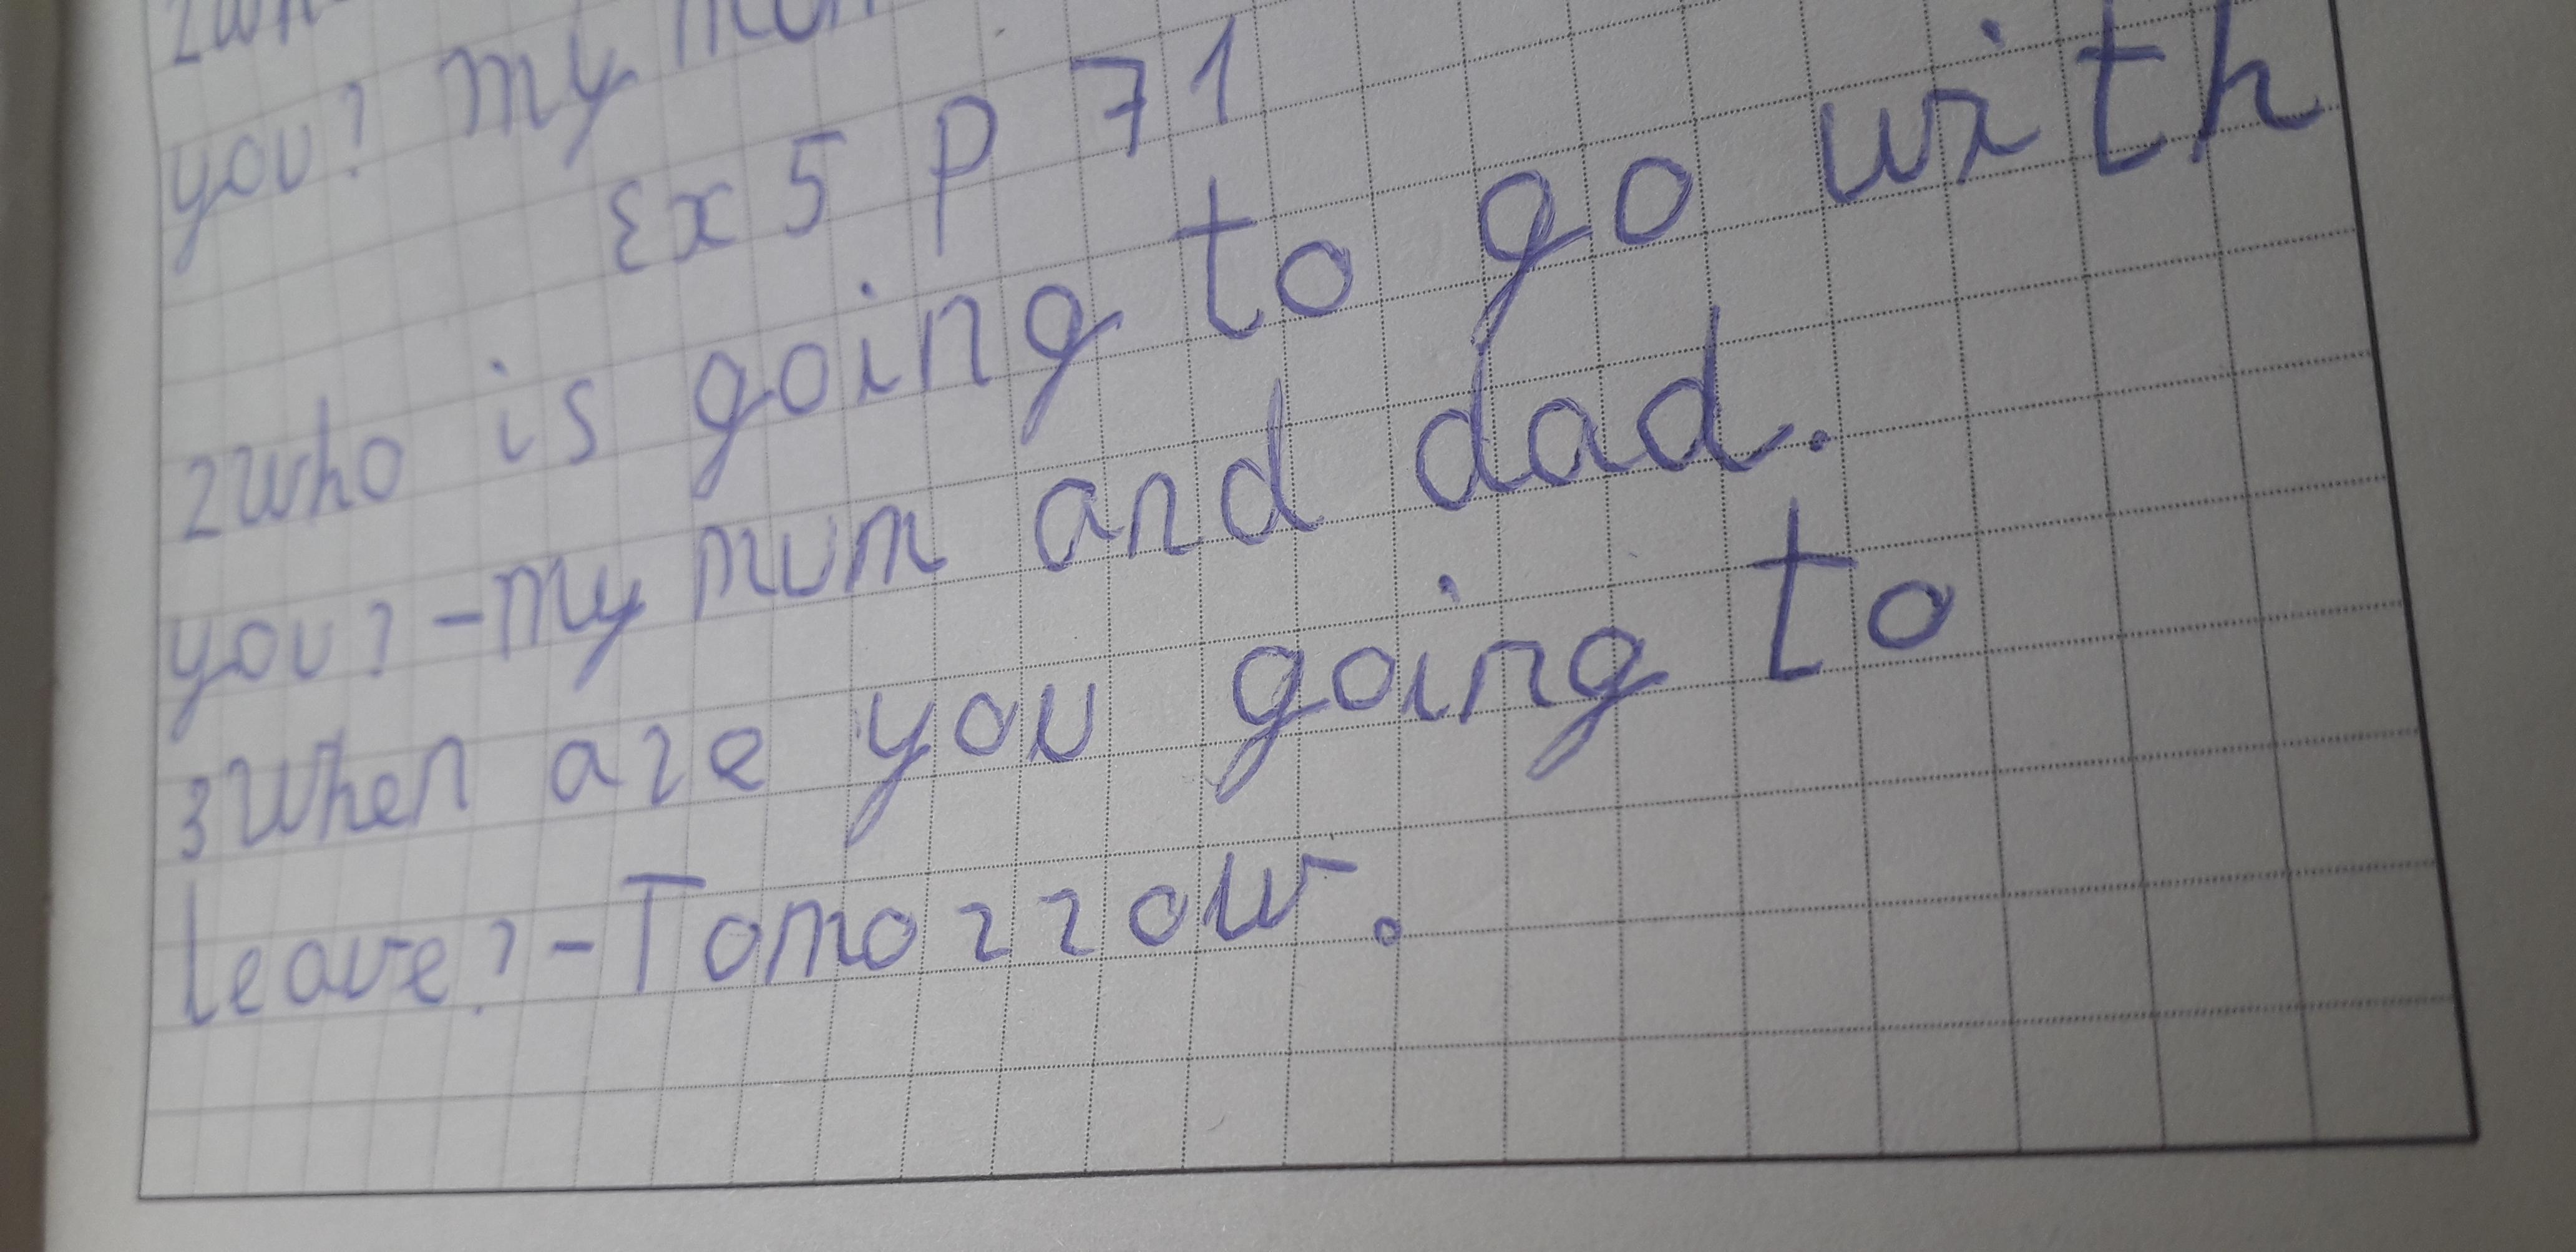 you? My
Ex 5 P 71
2 Who is going to go with
you? - My mum and dad.
3 When are you going to
leave? - Tomorrow.